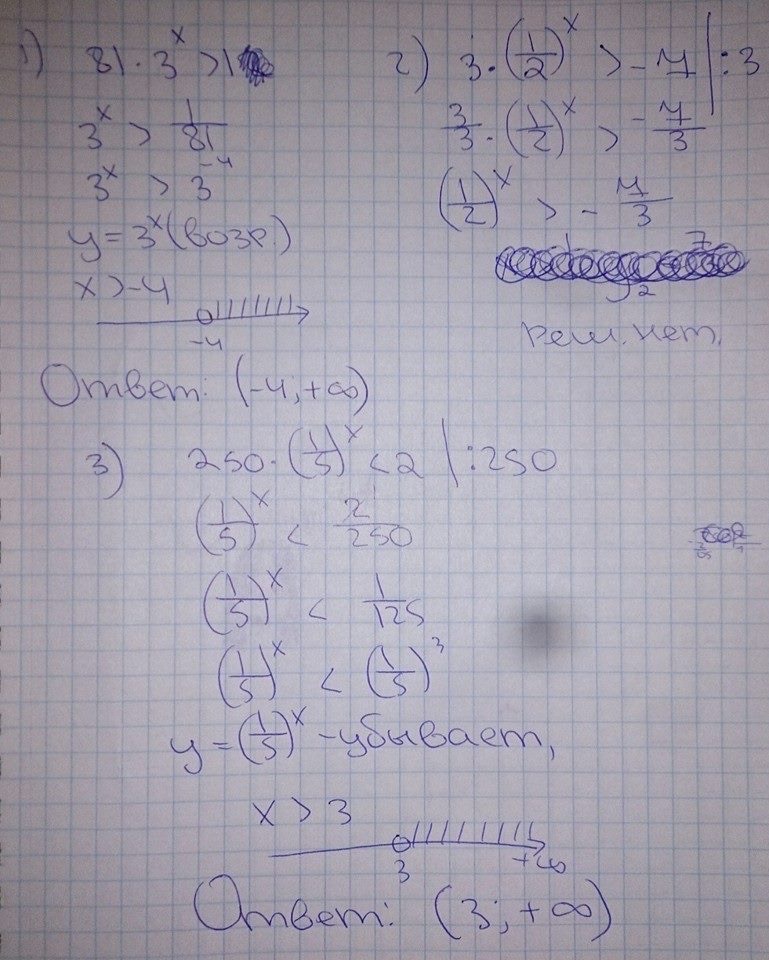 1) 81 · 3^x > 1
3^x > 1/81
3^x > 3^-4
y = 3^x (возр.)
x > -4
-4
Ответ: (-4; +∞)
2) 3 · (1/2)^x > -7 | : 3
3/3 · (1/2)^x > -7/3
(1/2)^x > -7/3
реш. нет.
3) 250 · (1/5)^x < 2 | : 250
(1/5)^x < 2/250
(1/5)^x < 1/125
(1/5)^x < (1/5)^3
y = (1/5)^x - убывает,
x > 3
3 +∞
Ответ: (3; +∞)